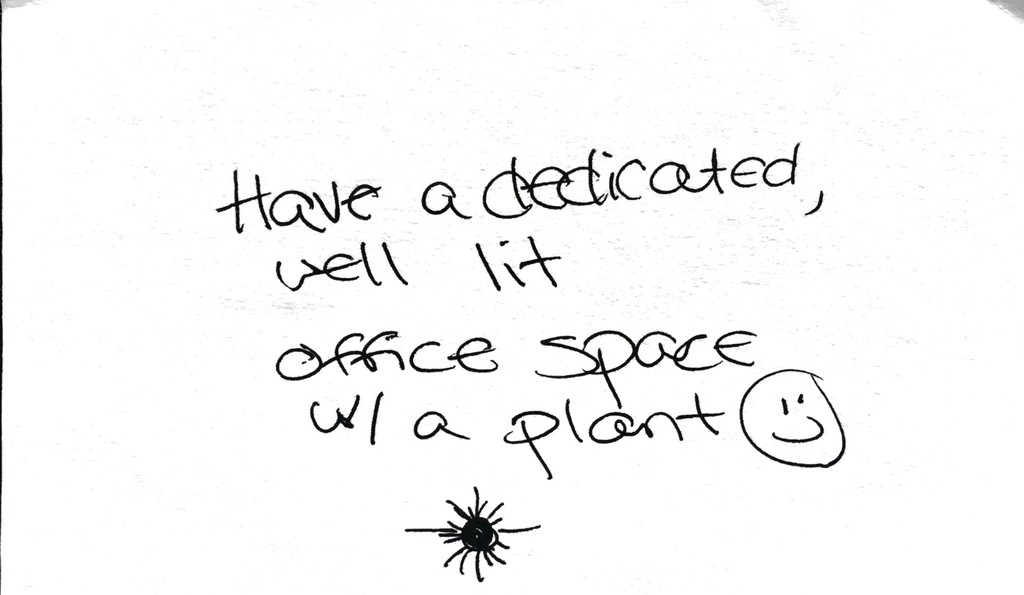 Have a dedicated,
well lit
office space
w/ a plant